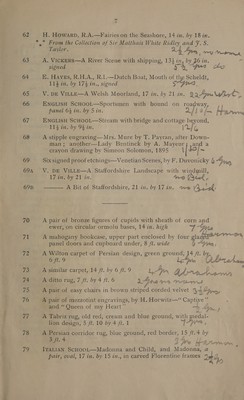 7
62 H. HOWARD, R.A.—Fairies on the Seashore, 14 in. by 18 in.
*** From the Collection of Sir Matthew White Ridley and T. S. Tayler.
63 A. VICKERS—A River Scene with shipping, 13½ in. by 26 in. signed
64 E. HAYES, R.H.A., R.I.—Dutch Boat, Mouth of the Scheldt, 11½ in. by 17½ in., signed
65 V. DE VILLE—A Welsh Moorland, 17 in. by 21 in.
66 ENGLISH SCHOOL—Sportsmen with hound on roadway, panel 6½ in. by 5 in.
67 ENGLISH SCHOOL—Stream with bridge and cottage beyond, 11½ in. by 9½ in.
68 A stipple engraving—Mrs. Mure by T. Paytor, after Downman; another—Lady Bentinck by A. Mayeur; and a crayon drawing by Stanton Solomon, 1895
69 Six signed proof etchings—Venetian Scenes, by F.
69A V. DE VILLE—A Staffordshire Landscape with windmill, 17 in. by 21 in. no Bid
69B — A Bit of Staffordshire, 21 in. by 17 in. no Bid
70 A pair of bronze figures of cupids with sheath of corn and ewer, on circular ormolu bases, 14 in. high
71 A mahogany bookcase, upper part enclosed by four glazed panel doors and cupboard under, 8 ft. wide
72 A Wilton carpet of Persian design, green ground, 14 ft. by 6 ft. 9
73 A similar carpet, 14 ft. by 6 ft. 9
74 A ditto rug, 7 ft. by 4 ft. 6
75 A pair of easy chairs in brown striped corded velvet
76 A pair of memorial engravings, by H. Hurwitz—" Captive " and " Queen of my Heart
77 A Tabriz rug, old red, cream and blue ground, with medallion design, 5 ft. 10 by 4 ft. 1
78 A Persian corridor rug, blue ground, red border, 15 ft. 4 by 3 ft. 4
79 ITALIAN SCHOOL—Madonna and Child, and Madonna, a pair, oval, 17 in. by 13 in., in carved Florentine frames